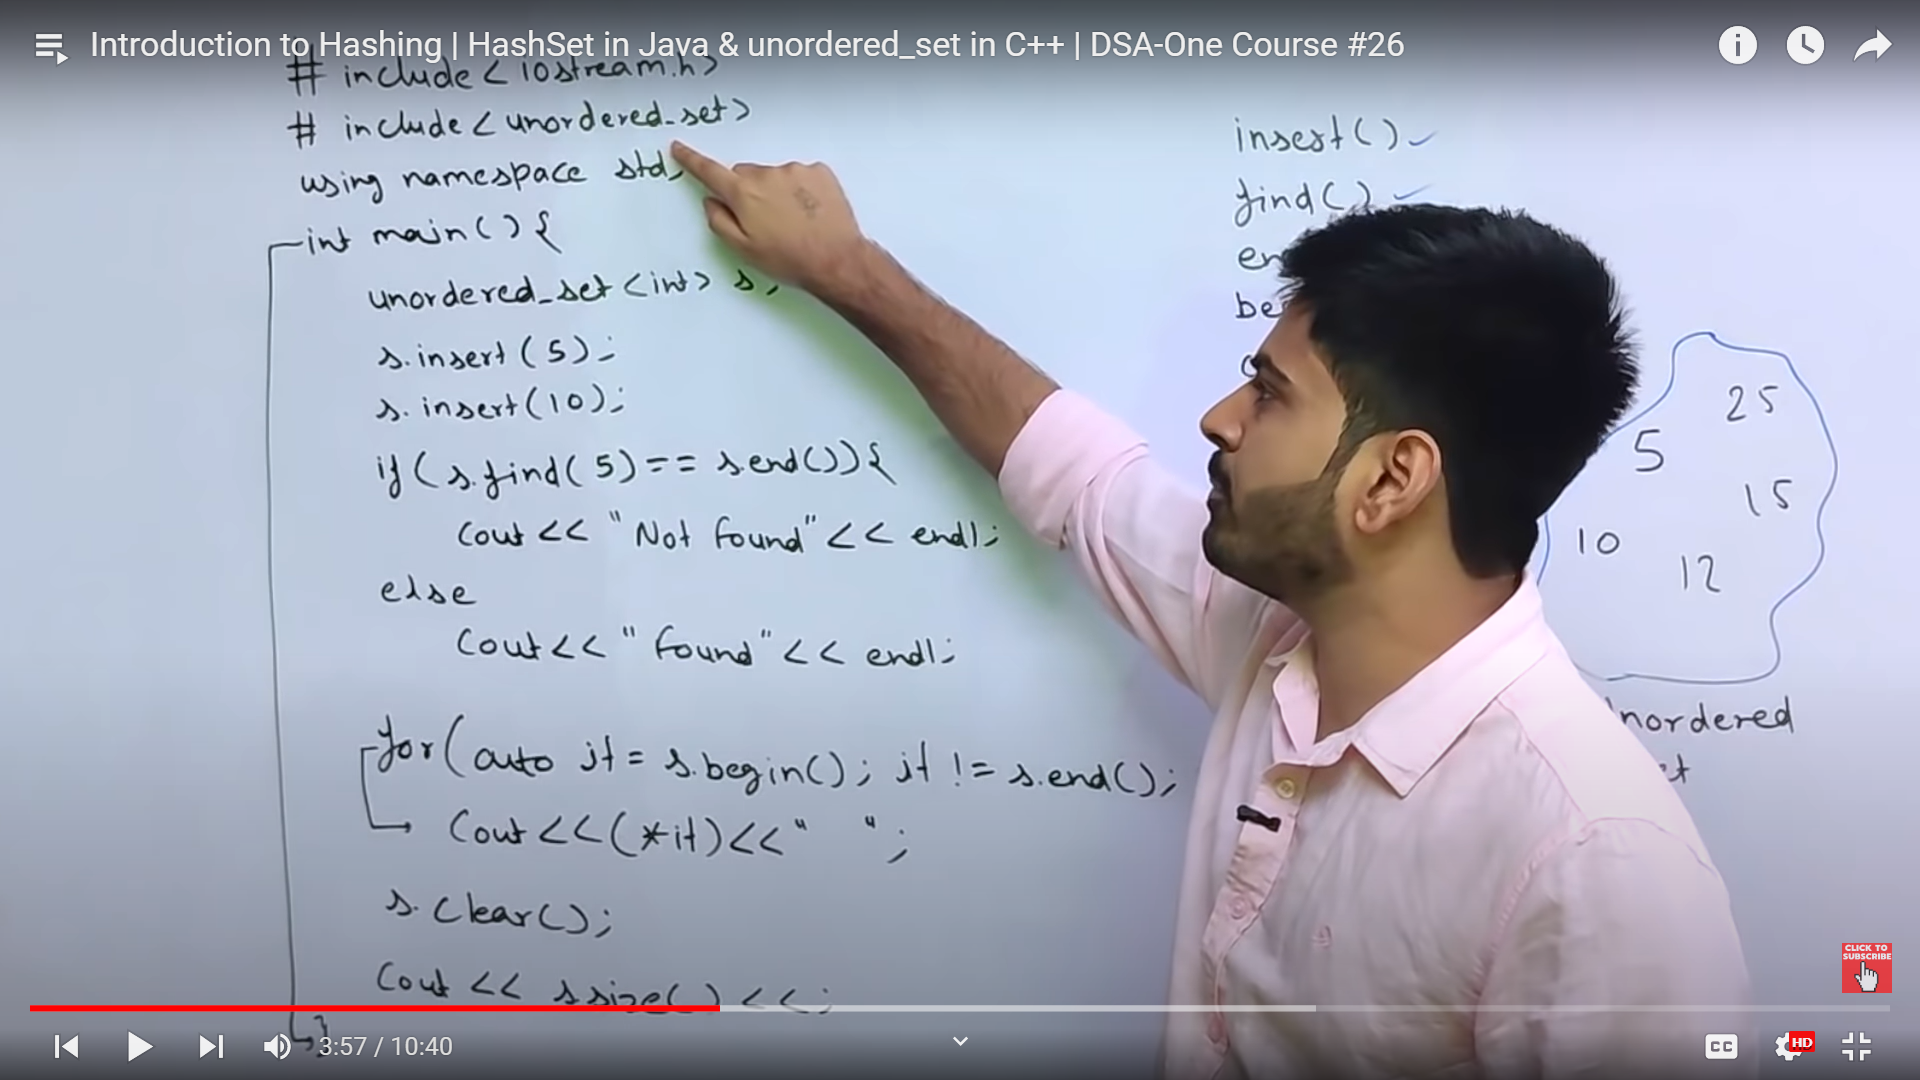 Introduction to Hashing | HashSet in Java & unordered_set in C++ | DSA-One Course #26
# include < iostream.h>
# include < unordered_set>
using namespace std;
int main() {
unordered_set <int> s;
s.insert (5);
s. insert(10);
if ( s.find( 5) == s.end()) {
Cout << "Not Found" << endl;
else
Cout << "Found" << endl;
for( auto it = s.begin(); it != s.end();
Cout <<(*it)<< " " ;
s. clear();
Cout << s.size() << ;
}
insert()
find()
be
25
5
15
10
12
nordered
CLICK TO
SUBSCRIBE
3:57 / 10:40
CC
HD